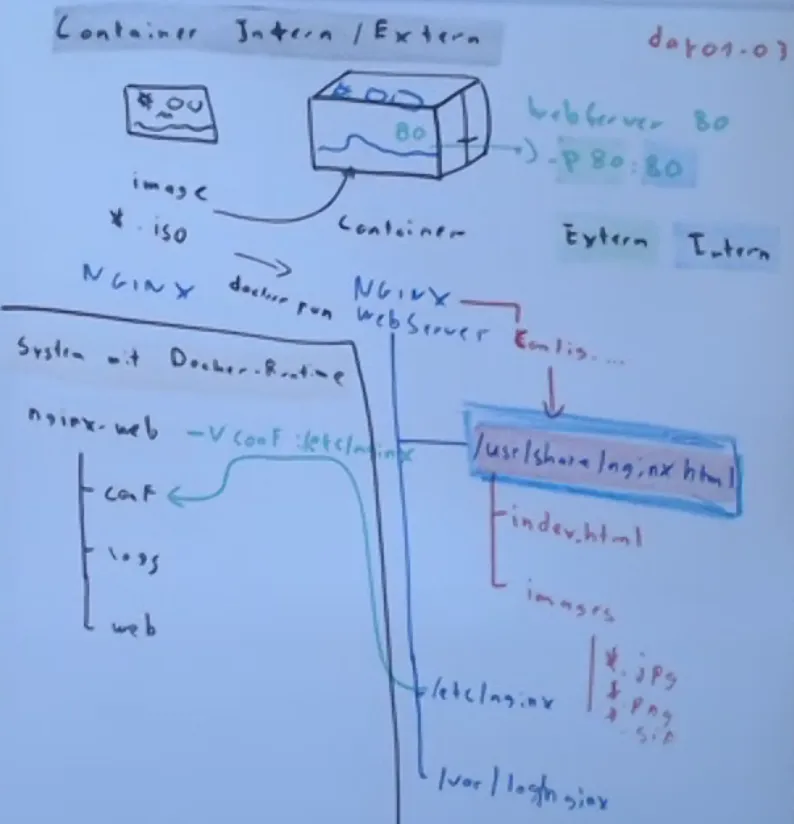 Container Intern / Extern
day01-03
80
WebServer 80
-p 80:80
image
*.iso
Container
Extern Intern
NGINX
docker run
NGINX
WebServer
Konfig....
System mit Docker-Runtime
nginx-web -v conf:/etc/nginx
conf
logs
web
/usr/share/nginx html
index.html
images
*.jpg
*.png
*.gif
/etc/nginx
/var/log/nginx